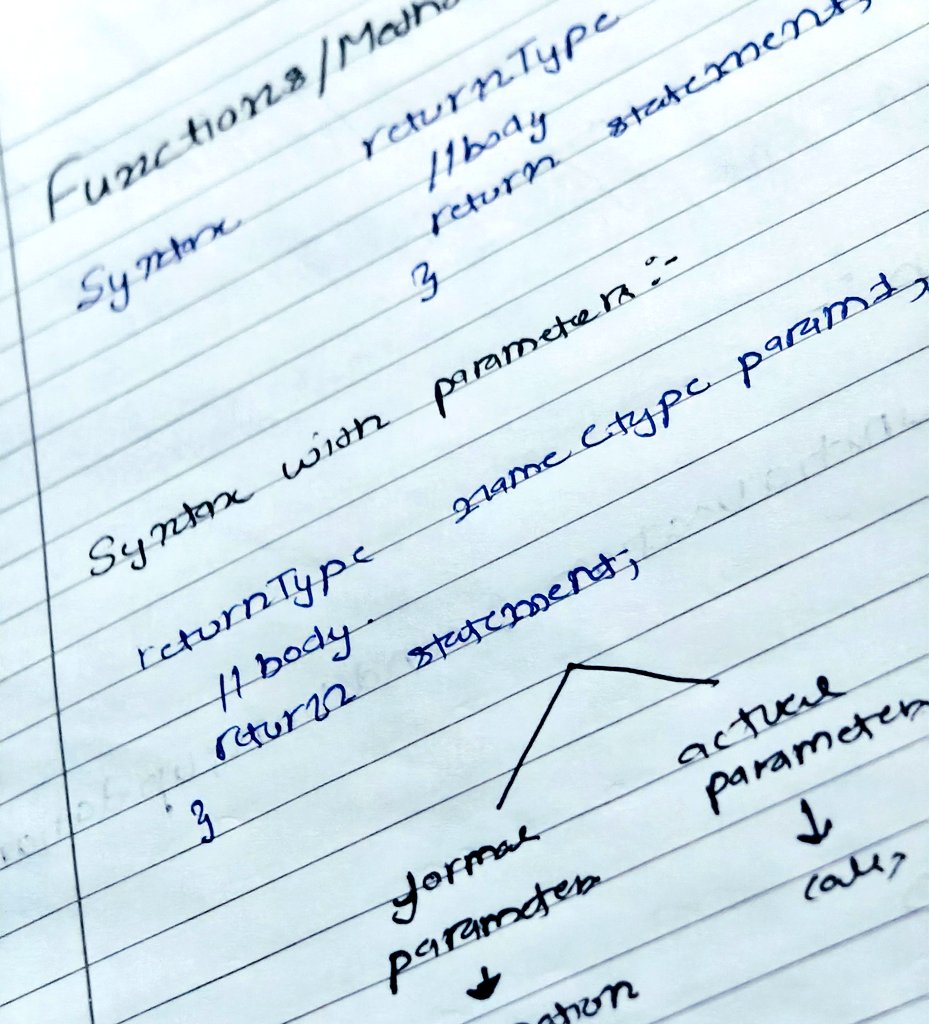 Functions/Meth
Syntax returnType
//body
return statement;
}
Syntax with parameters :-
returnType name (type param1,
//body.
return statement;
}
formal parameter
actual parameter
call,
ation